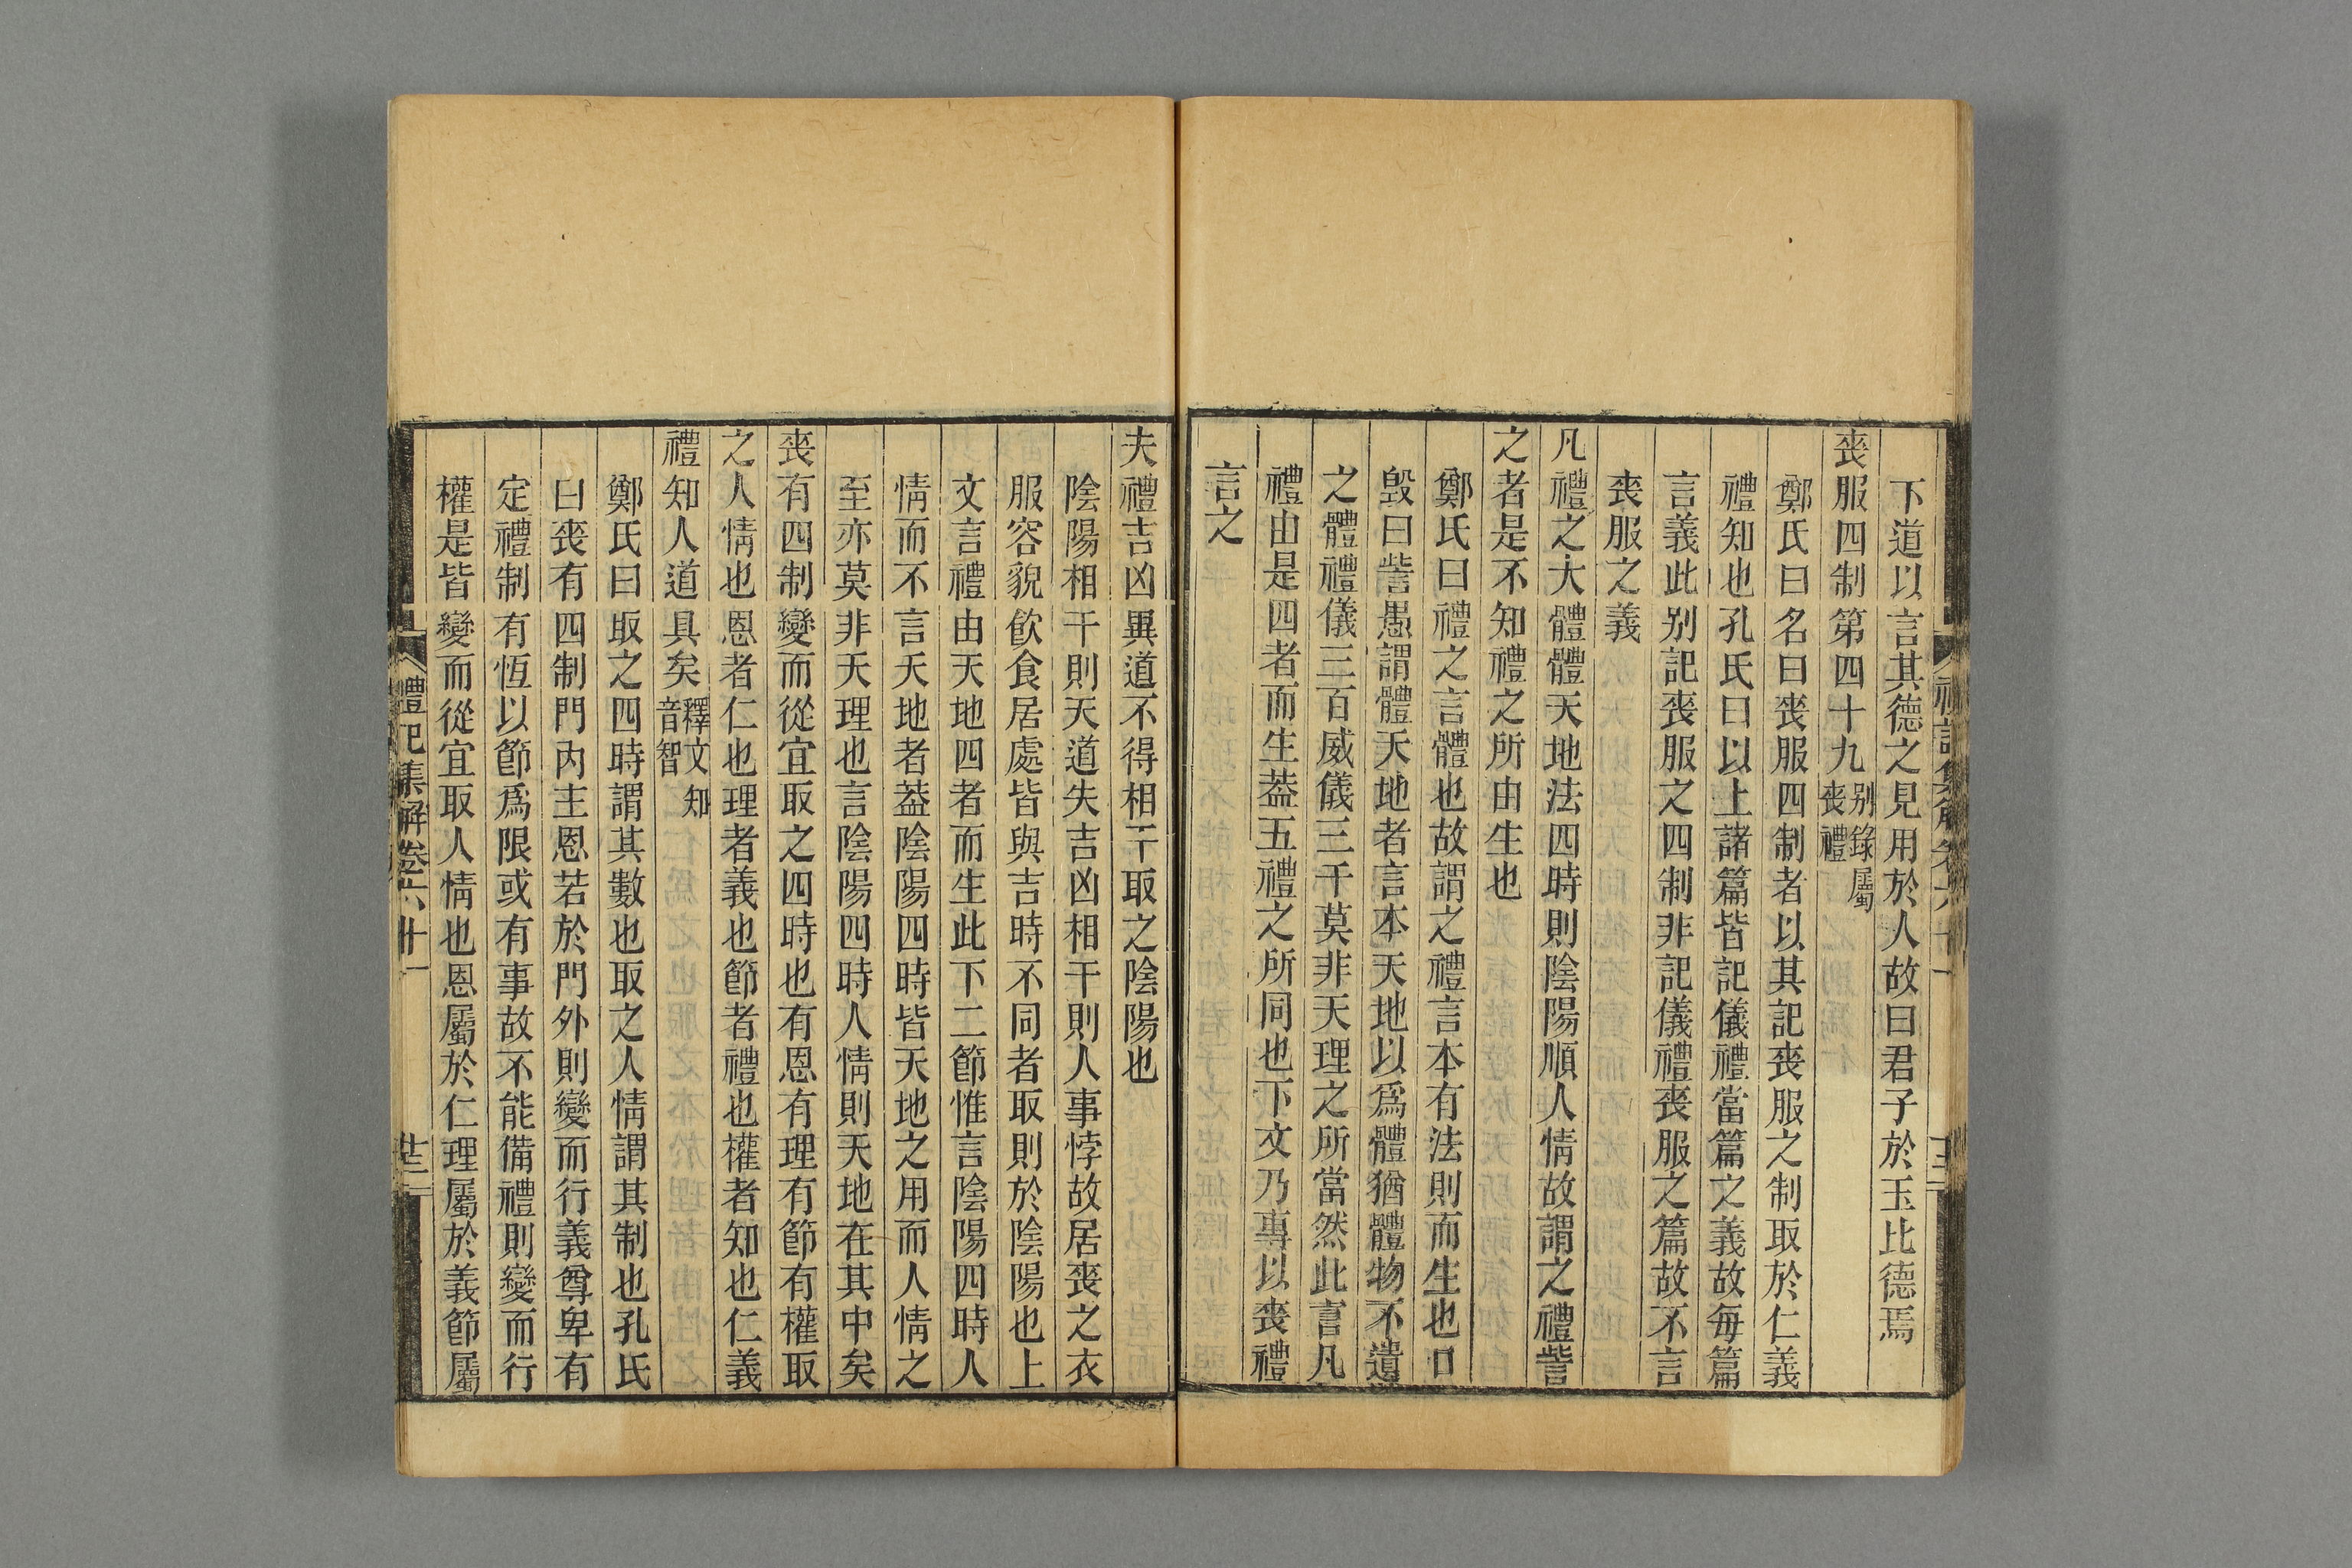 下道以言其德之見用於人故曰君子於玉比德焉
喪服四制第四十九別錄屬喪禮
鄭氏曰名曰喪服四制者以其記喪服之制取於仁義
禮知也孔氏曰以上諸篇皆記儀禮當篇之義故每篇
言義此别記喪服之四制非記儀禮喪服之篇故不言
喪服之義
凡禮之大體體天地法四時則陰陽順人情故謂之禮訾
之者是不知禮之所由生也
鄭氏曰禮之言體也故謂之禮言本有法則而生也口
毀曰訾愚謂體天地者言本天地以爲體猶體物不遺
之體禮儀三百威儀三千莫非天理之所當然此言凡
禮由是四者而生葢五禮之所同也下文乃專以喪禮
言之
夫禮吉凶異道不得相干取之陰陽也
陰陽相干則天道失吉凶相干則人事悖故居喪之衣
服容貌飮食居處皆與吉時不同者取則於陰陽也上
文言禮由天地四者而生此下二節惟言陰陽四時人
情而不言天地者葢陰陽四時皆天地之用而人情之
至亦莫非天理也言陰陽四時人情則天地在其中矣
喪有四制變而從宜取之四時也有恩有理有節有權取
之人情也恩者仁也理者義也節者禮也權者知也仁義
禮知人道具矣釋文知音智
鄭氏曰取之四時謂其數也取之人情謂其制也孔氏
曰喪有四制門內主恩若於門外則變而行義尊卑有
定禮制有恆以節爲限或有事故不能備禮則變而行
權是皆變而從宜取人情也恩屬於仁理屬於義節屬
禮記集解卷六十一